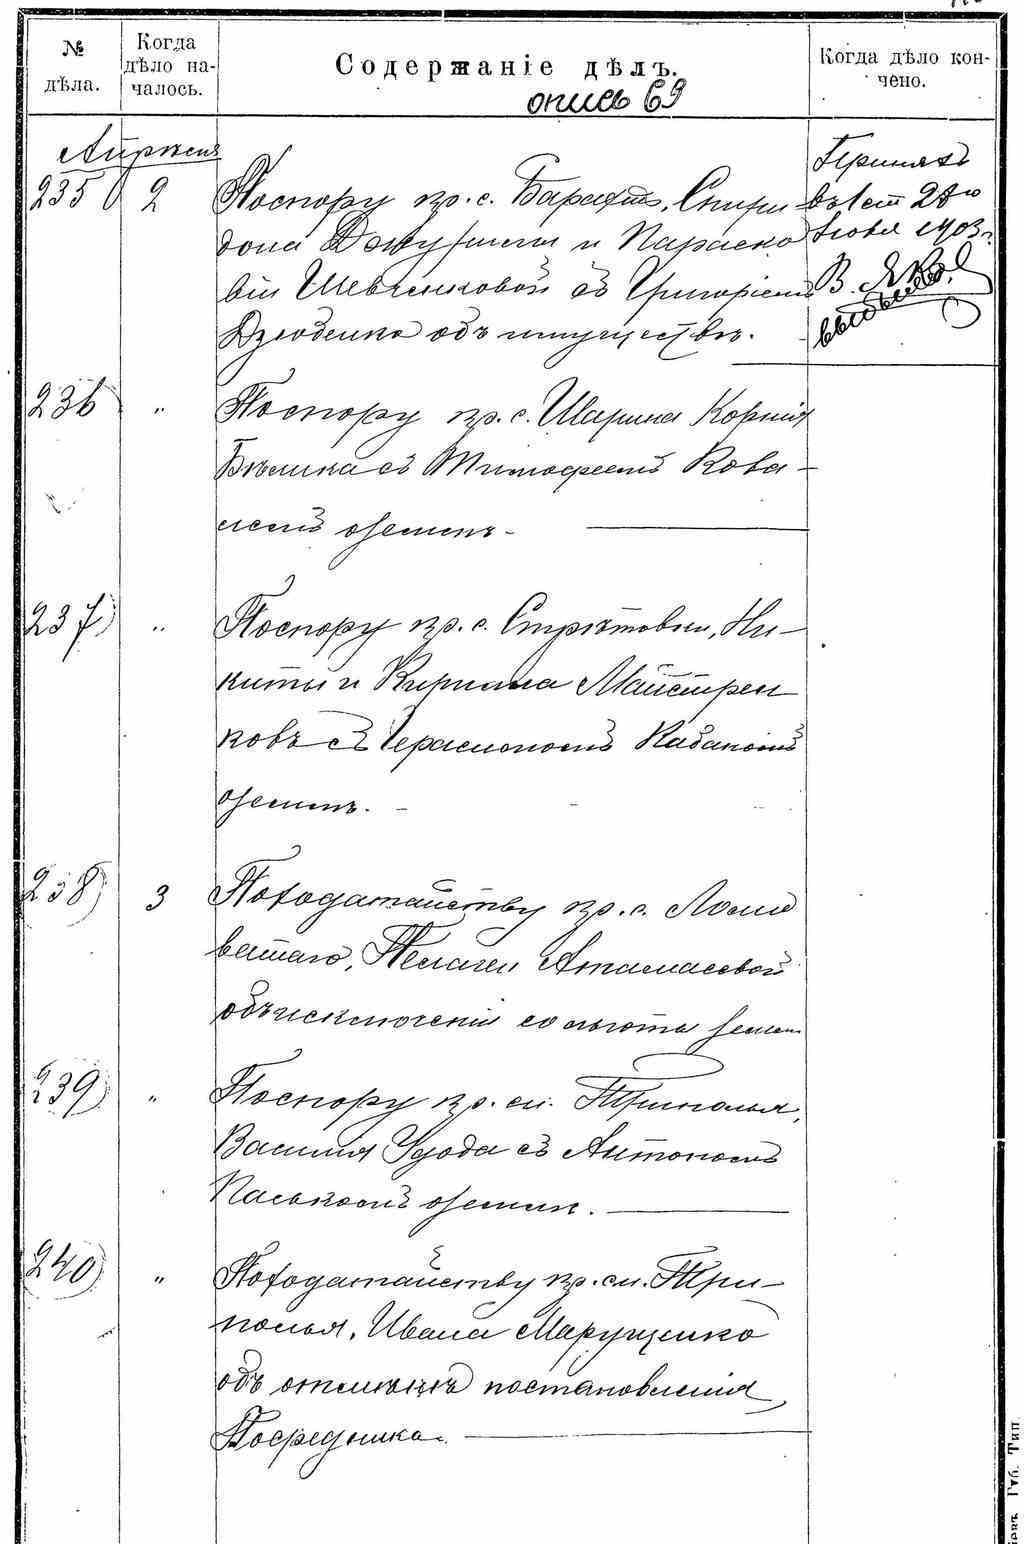 № дѣла.
Когда дѣло началось.
Содержаніе дѣлъ.
Когда дѣло кончено.
опись 69
Апрѣля
235 2 По спору кр. с. Барахт., Спири-
дона и Параско-
віи Шевченковой съ Григоріемъ
Дзюбенко объ имуществѣ.
Принялъ
въ 1 ст 28го
1903 г.
В. Яков
236 " По спору кр. с. Корнія
Бѣлика съ Тимофеемъ Кова-
лемъ о землѣ.
237 " По спору кр. с. Стрѣтовки, Ни-
киты и Кирилла Майстрен-
ковъ съ Герасимомъ Кабаномъ
о землѣ.
238 3 По ходатайству кр. с. Лома
ватаго, Пелагеи Атамасевой
объ исключеніи со льготы земли
239 " По спору кр. м. Триполья,
Василія Удода съ Антономъ
Паськомъ о землѣ.
240 " По ходатайству кр. м. Три-
полья, Ивана Марущенко
объ отмѣнѣ постановленія
Посредника.
Губ. Тип.